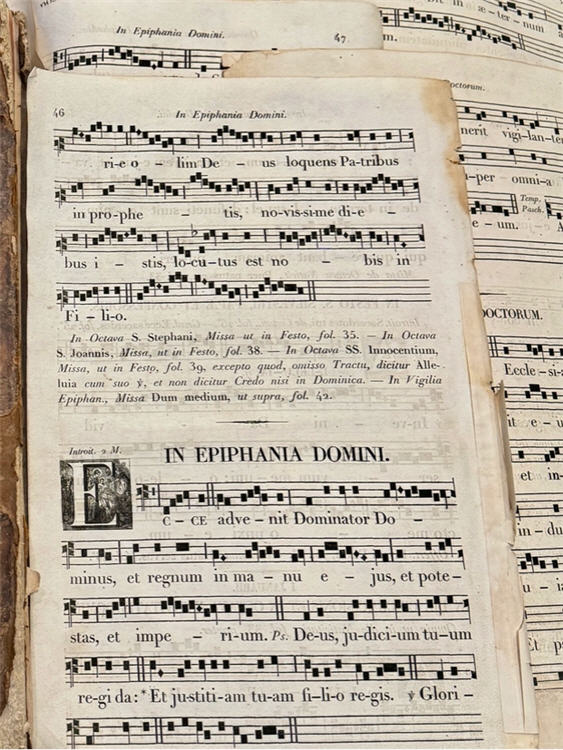 In Epiphania Domini.
47
46
In Epiphania Domini.
ri-e o - lim De - us loquens Pa-tribus
in pro-phe tis, no-vis-si-me di-e
bus i - stis, lo-cu-tus est no bis in
Fi - li-o.
In Octava S. Stephani, Missa ut in Festo, fol. 35. — In Octava
S. Joannis, Missa, ut in Festo, fol. 38. — In Octava SS. Innocentium,
Missa, ut in Festo, fol. 39, excepto quod, omisso Tractu, dicitur Alle-
luia cum suo ℣, et non dicitur Credo nisi in Dominica. — In Vigilia
Epiphan., Missa Dum medium, ut supra, fol. 42.
Introit. 2 M.
IN EPIPHANIA DOMINI.
E
C - CE adve - nit Dominator Do -
minus, et regnum in ma - nu e - jus, et pote -
stas, et impe - ri-um. Ps. De-us, ju-dici-um tu-um
re-gi da: * Et ju-stiti-am tu-am fi-li-o re-gis. ℣ Glori -
in æ - ter - num
octorum.
nerit vigi-lan-te
-per omni-a
Temp.
Pasch.
e - um.
OCTORUM.
Eccle - si-
it e - u
et in-
in - du